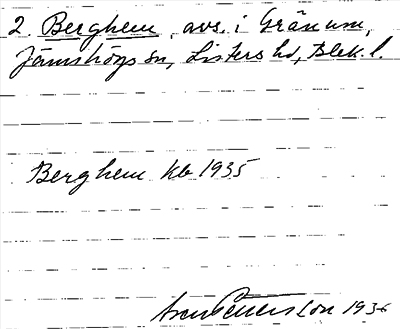 2. Berghem, avs. i Gränum,
Jämshögs sn, Listers hd, Blek. l.
Berghem Kb 1935
1936